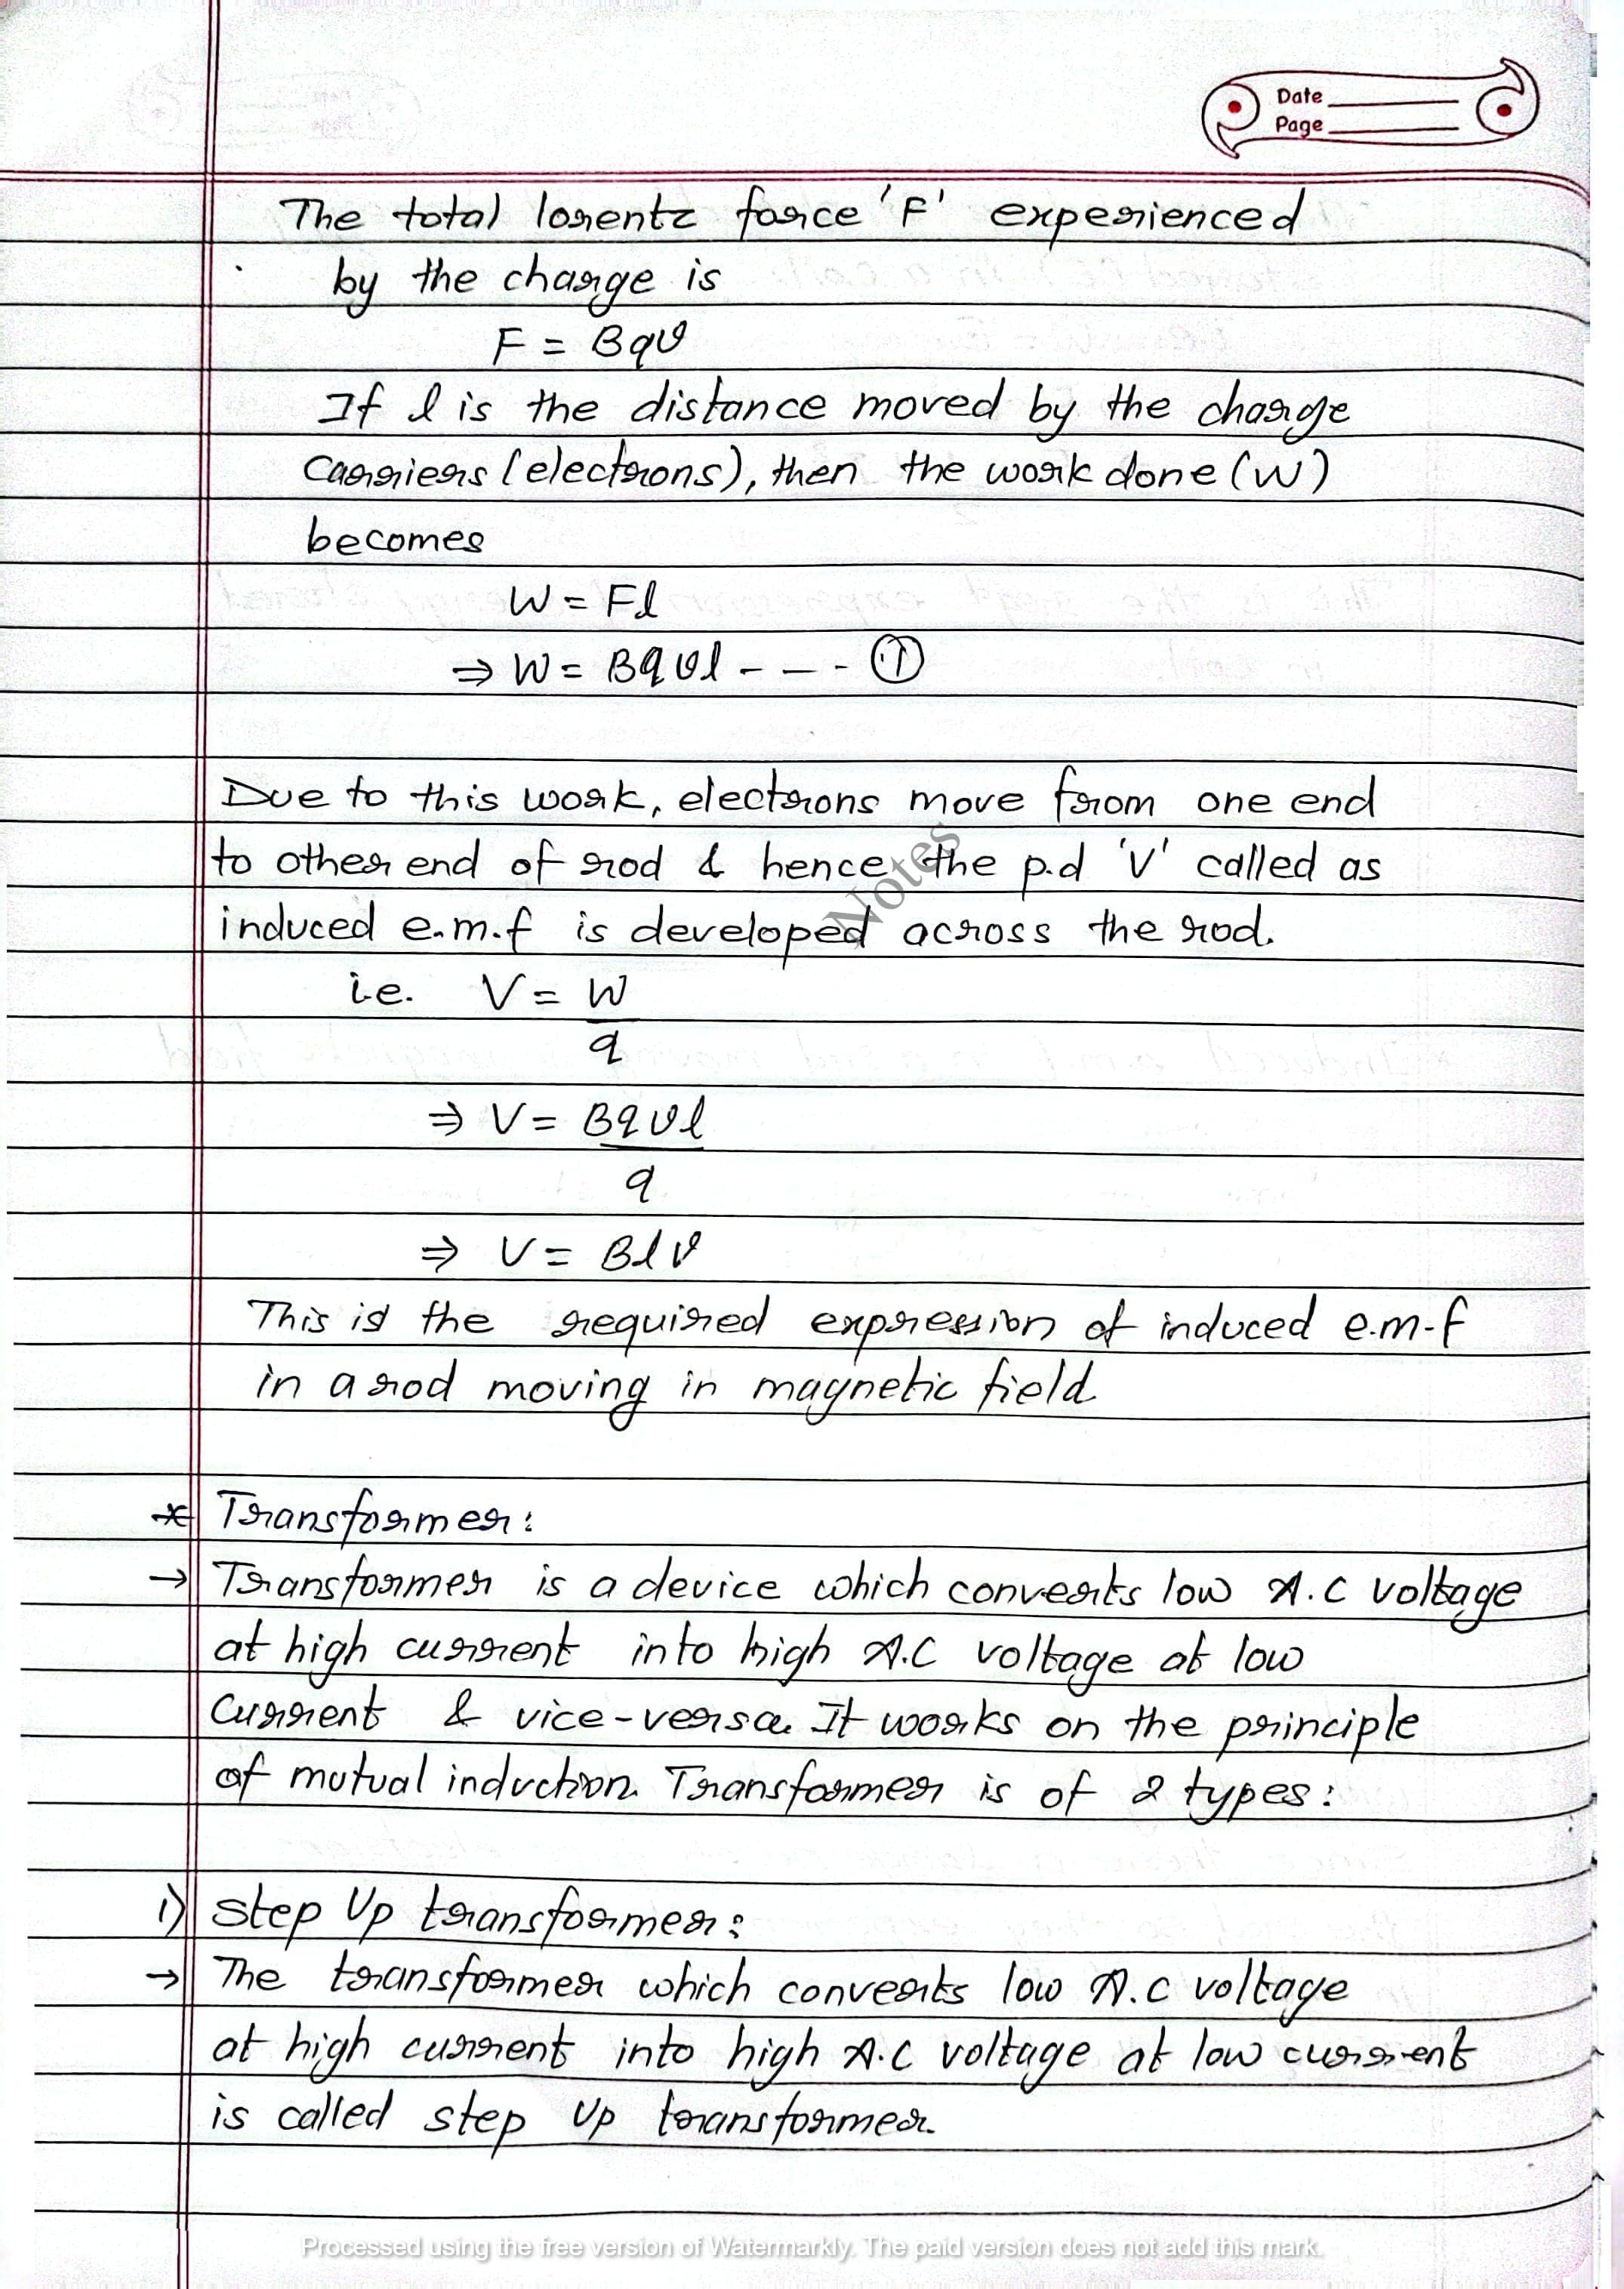 Date
Page
The total lorentz force 'F' experienced
by the charge is
F = Bqv
If l is the distance moved by the charge
carriers (electrons), then the work done (W)
becomes
W = Fl
⇒ W = Bqvl - - - ①
Due to this work, electrons move from one end
to other end of rod & hence, the p.d 'V' called as
induced e.m.f is developed across the rod.
i.e. V = W
q
⇒ V = Bqvl
q
⇒ V = Blv
This is the required expression of induced e.m.f
in a rod moving in magnetic field
* Transformer:
→ Transformer is a device which converts low A.C voltage
at high current into high A.C voltage at low
current & vice-versa. It works on the principle
of mutual induction. Transformer is of 2 types:
i) Step Up transformer:
→ The transformer which converts low A.C voltage
at high current into high A.C voltage at low current
is called step up transformer.
Notes
Processed using the free version of Watermarkly. The paid version does not add this mark.